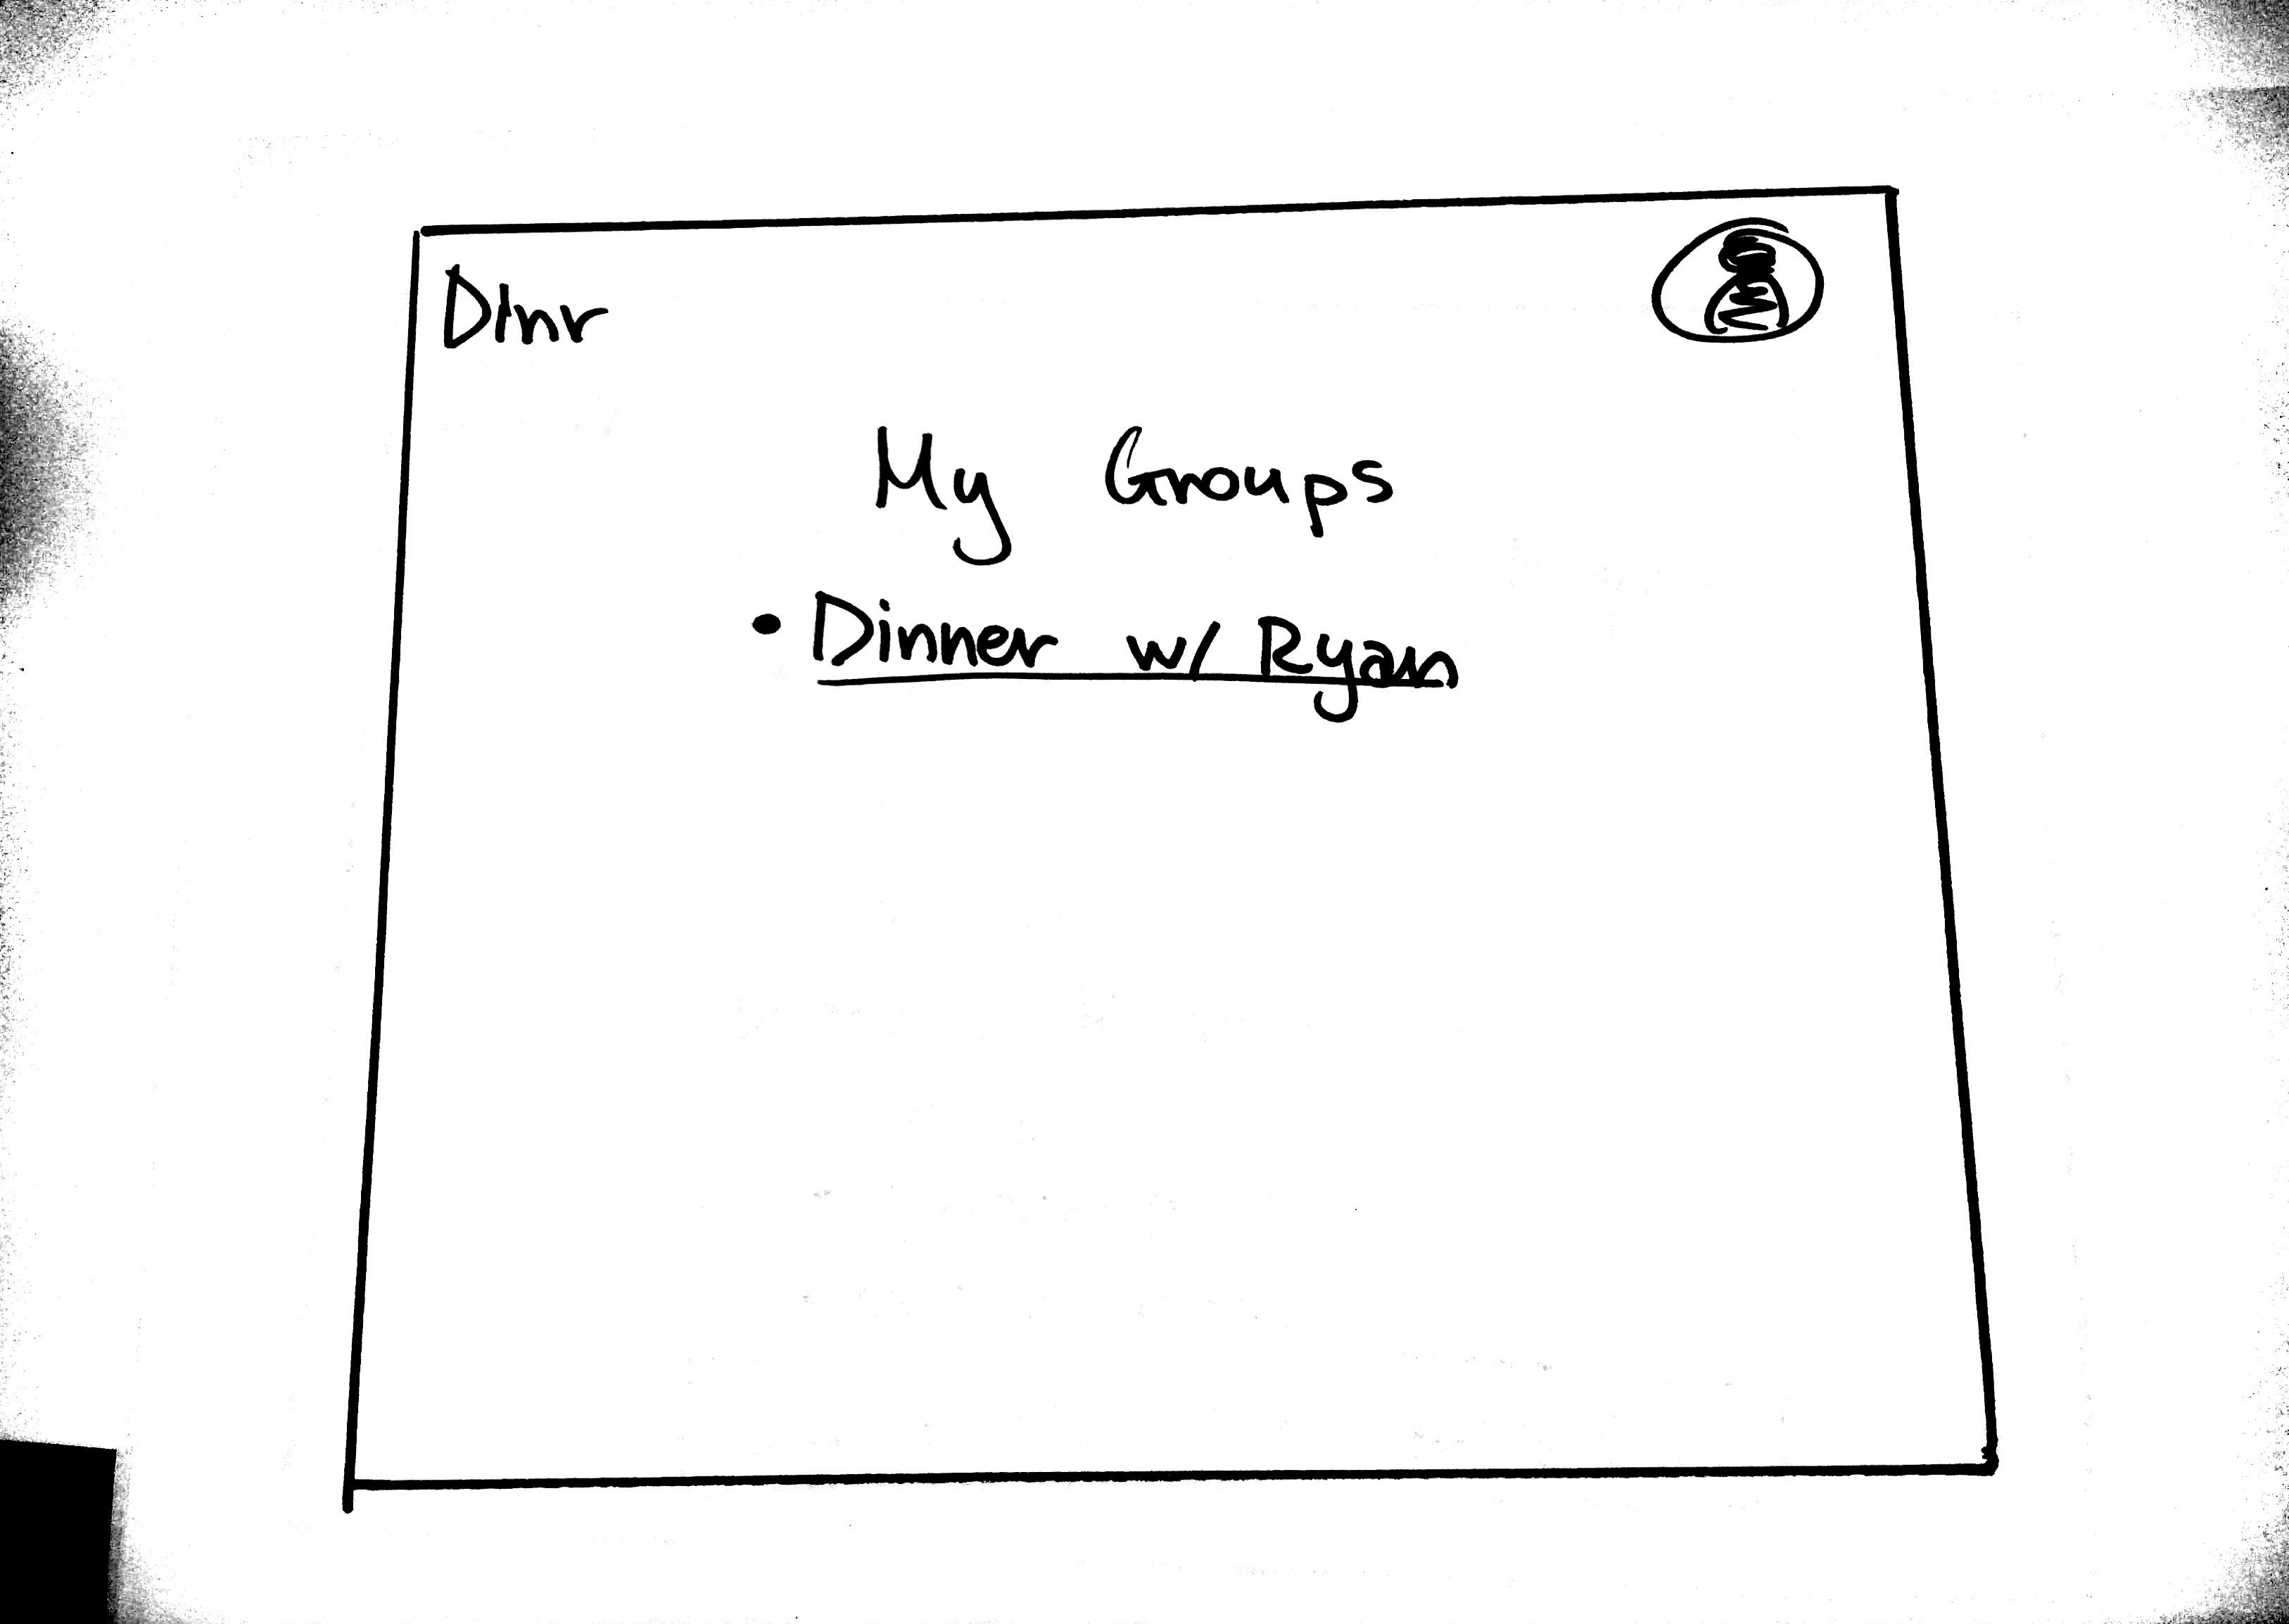 Dinr
My Groups
• Dinner w/ Ryan